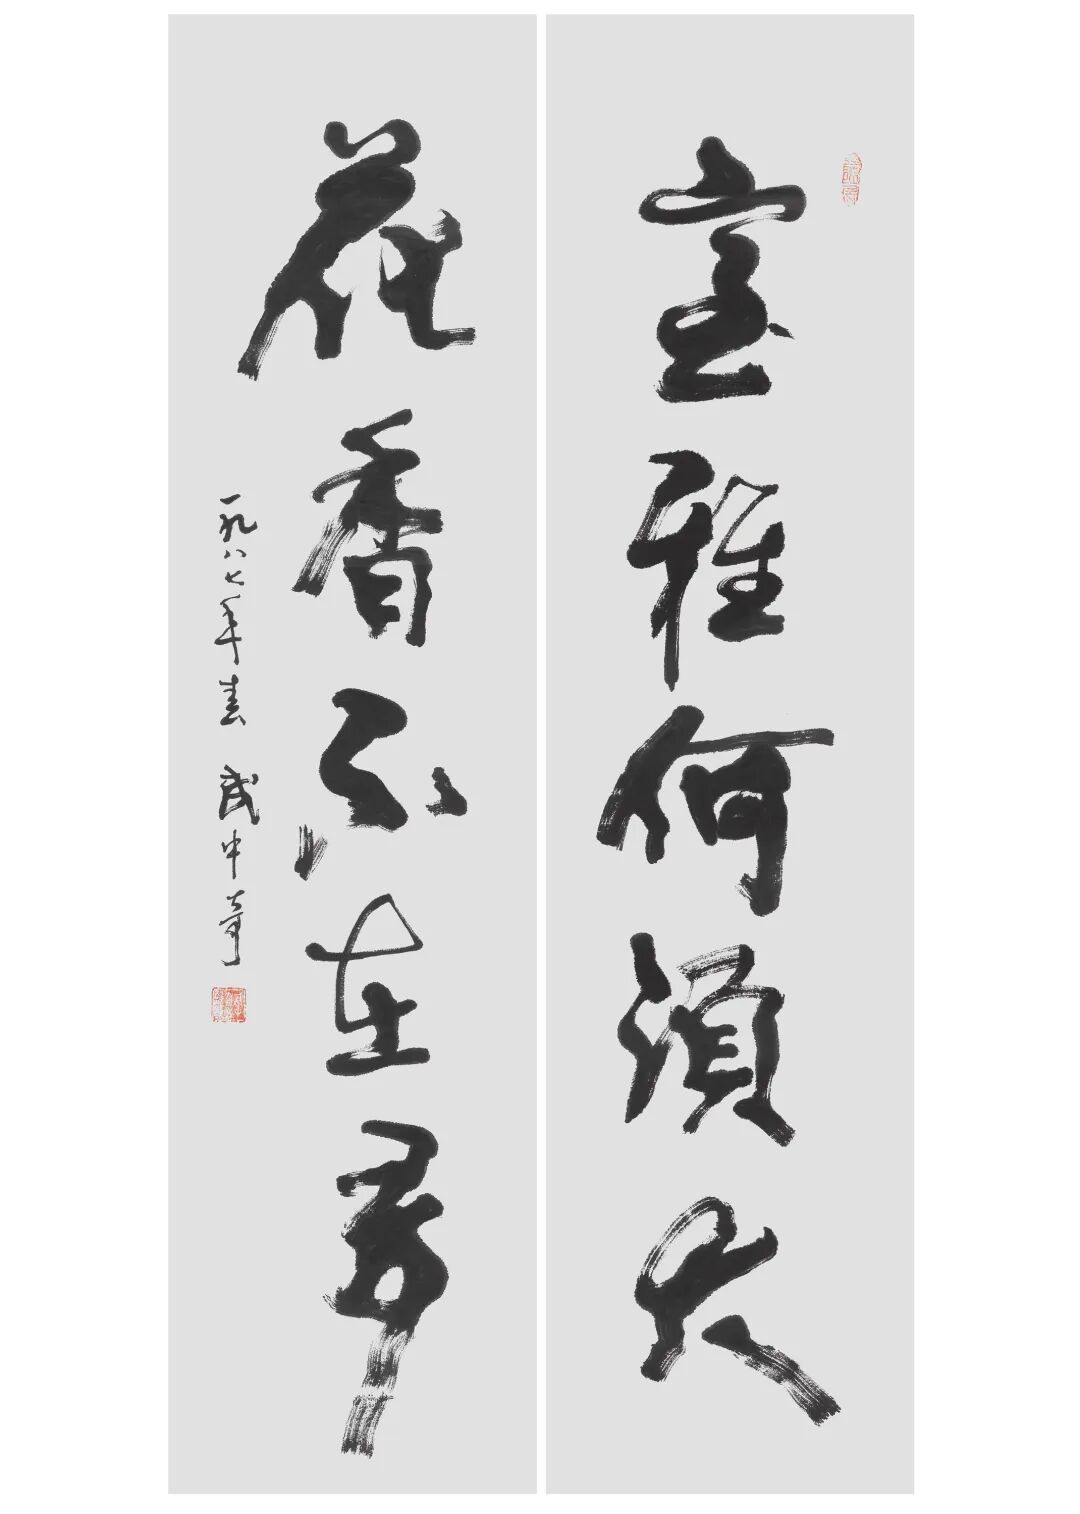 室雅何須大
花香不在多
一九八七年春 武中奇